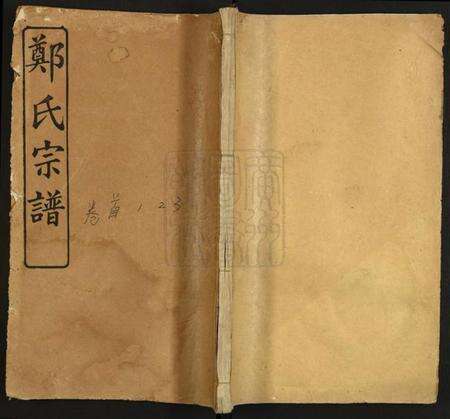 鄭氏宗譜
卷首 1 2 3